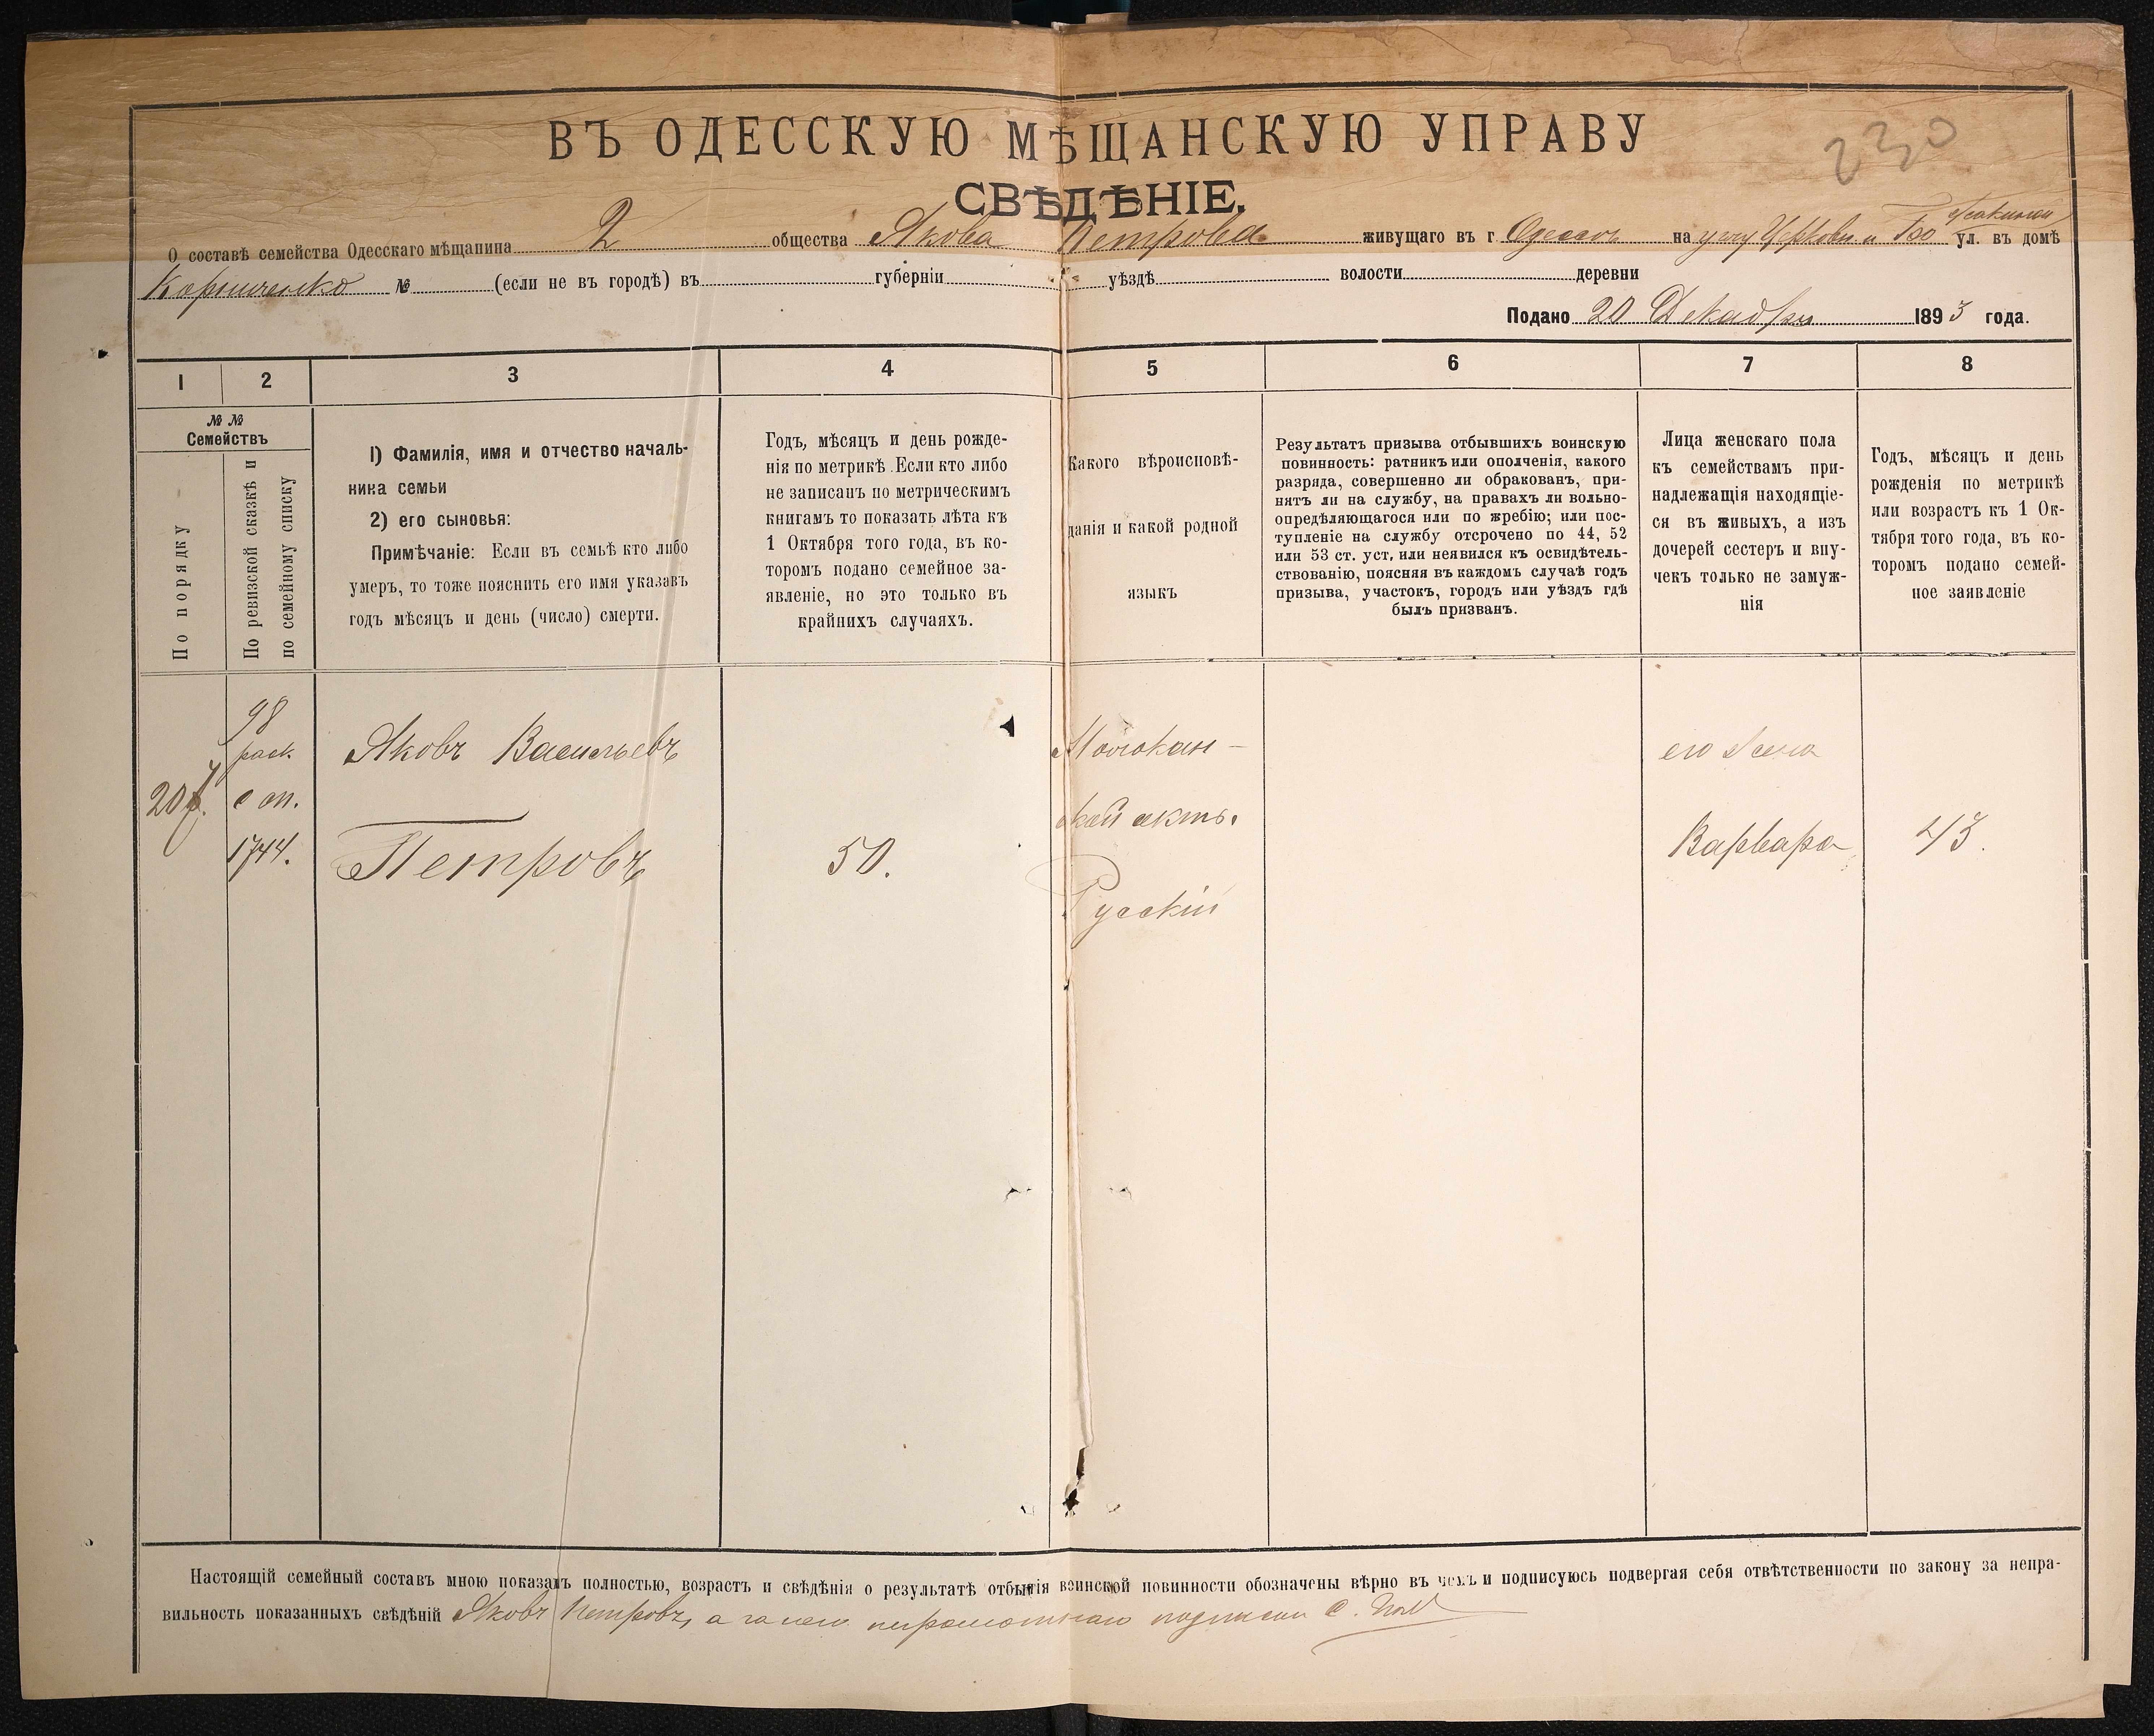 230
ВЪ ОДЕССКУЮ МѢЩАНСКУЮ УПРАВУ
СВѢДѢНІЕ.
О составѣ семейства Одесскаго мѣщанина 2 общества Якова Петрова живущаго въ г Одессѣ на углу ул. въ домѣ
№ (если не въ городѣ) въ губерніи уѣздѣ волости деревни
Подано 20 Декабря 1893 года.
1 2 3 4 5 6 7 8
№ №
Семействъ
По порядку
По ревизской сказкѣ и
по семейному списку
1) Фамилія, имя и отчество началь-
ника семьи
2) его сыновья:
Примѣчаніе: Если въ семьѣ кто либо
умеръ, то тоже пояснить его имя указавъ
годъ мѣсяцъ и день (число) смерти.
Годъ, мѣсяцъ и день рожде-
нія по метрикѣ. Если кто либо
не записанъ по метрическимъ
книгамъ то показать лѣта къ
1 Октября того года, въ ко-
торомъ подано семейное за-
явленіе, но это только въ
крайнихъ случаяхъ.
Какого вѣроисповѣ-
данія и какой родной
языкъ
Результатъ призыва отбывшихъ воинскую
повинность: ратникъ или ополченія, какого
разряда, совершенно ли обракованъ, при-
нятъ ли на службу, на правахъ ли вольно-
опредѣляющагося или по жребію; или пос-
тупленіе на службу отсрочено по 44, 52
или 53 ст. уст, или неявился къ освидѣтель-
ствованію, поясняя въ каждомъ случаѣ годъ
призыва, участокъ, городъ или уѣздъ гдѣ
былъ призванъ.
Лица женскаго пола
къ семействамъ при-
надлежащія находящіе-
ся въ живыхъ, а изъ
дочерей сестеръ и вну-
чекъ только не замуж-
нія
Годъ, мѣсяцъ и день
рожденія по метрикѣ
или возрастъ къ 1 Ок-
тября того года, въ ко-
торомъ подано семей-
ное заявленіе
98
раск.
с оп.
1744.
Яковъ Васильевъ
Петровъ
50.
Молокан-
ской секты.
Русскій
его жена
Варвара
43.
Настоящій семейный составъ мною показанъ полностью, возрастъ и свѣдѣнія о результатѣ отбытія воинской повинности обозначены вѣрно въ чемъ и подписуюсь подвергая себя отвѣтственности по закону за непра-
вильность показанныхъ свѣдѣній Яковъ Петровъ, а за него неграмотнаго